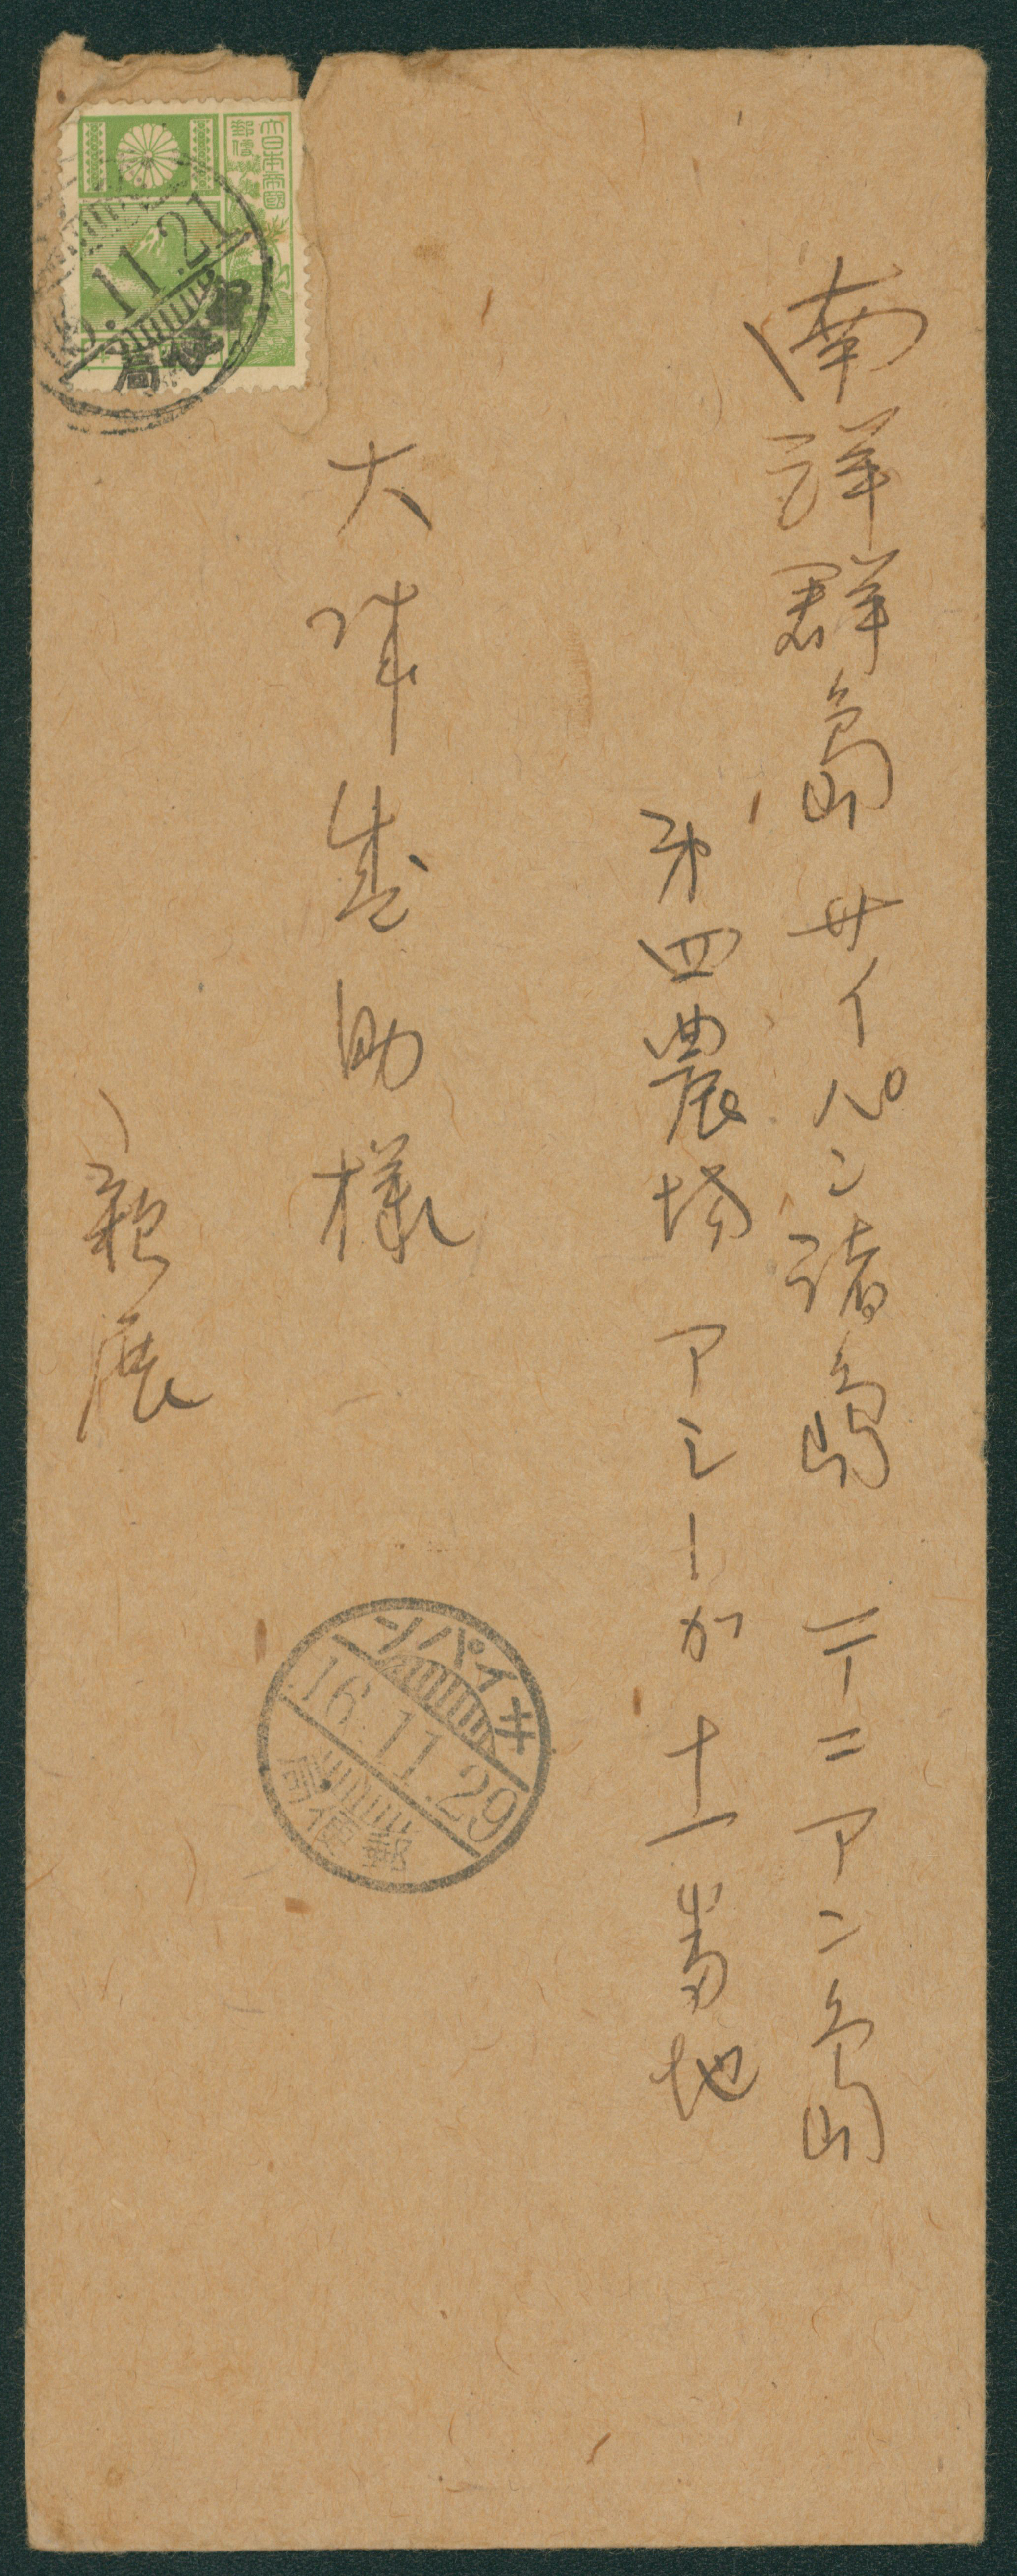 南洋群島サイパン諸島 テニアン島
第四農場 アシーガ十一番地
大津盛助様
親展
大日本帝國
郵便
11.21
郵便局
サイパン
16.11.29
郵便局